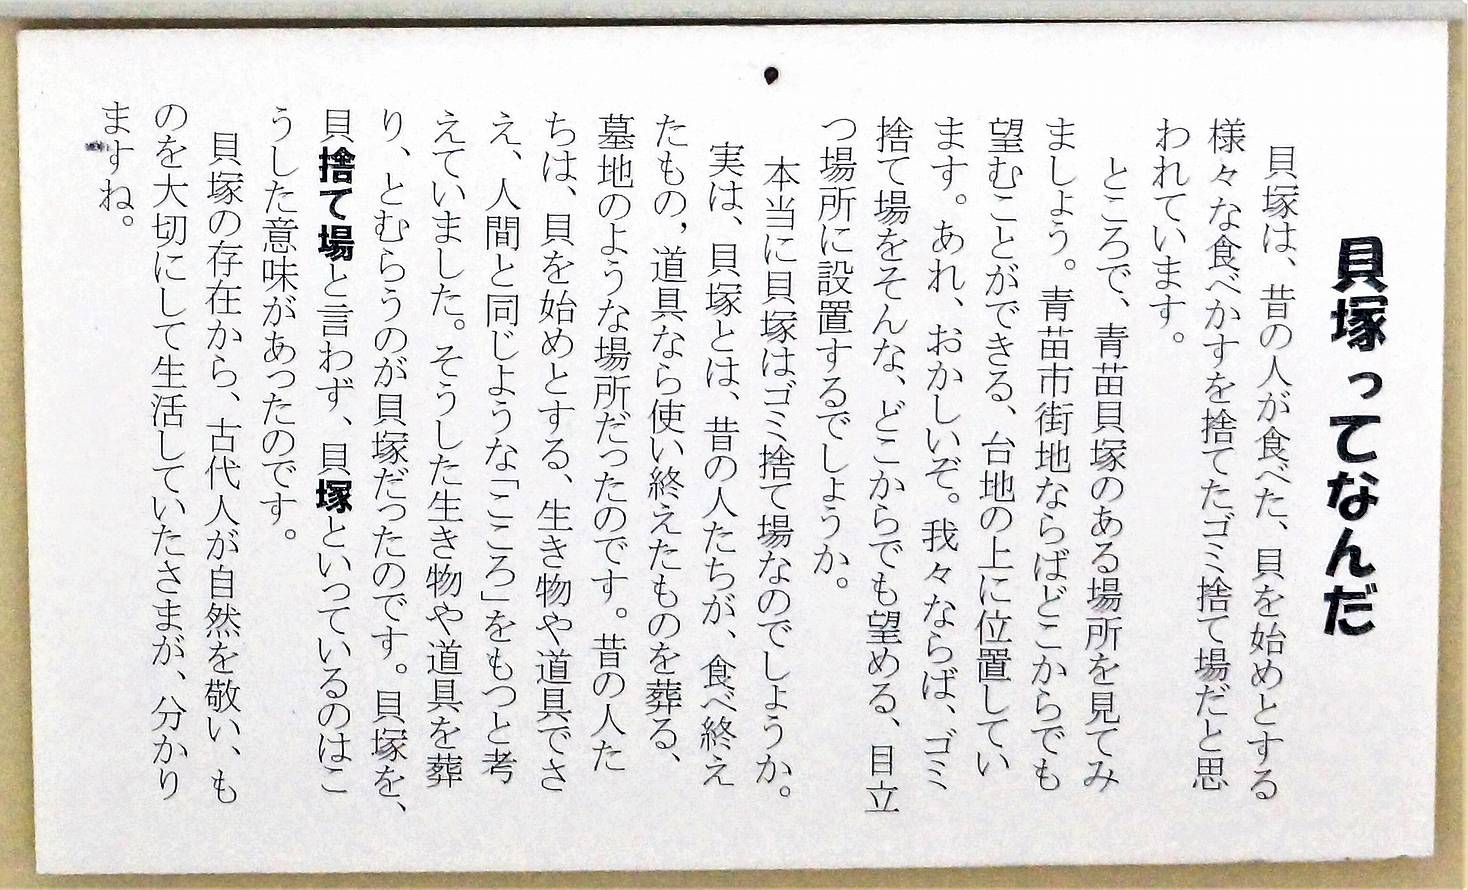 貝塚ってなんだ
貝塚は、昔の人が食べた、貝を始めとする
様々な食べかすを捨てたゴミ捨て場だと思
われています。
ところで、青苗貝塚のある場所を見てみ
ましょう。青苗市街地ならばどこからでも
望むことができる、台地の上に位置してい
ます。あれ、おかしいぞ。我々ならば、ゴミ
捨て場をそんな、どこからでも望める、目立
つ場所に設置するでしょうか。
本当に貝塚はゴミ捨て場なのでしょうか。
実は、貝塚とは、昔の人たちが、食べ終え
たもの,道具なら使い終えたものを葬る、
墓地のような場所だったのです。昔の人た
ちは、貝を始めとする、生き物や道具でさ
え、人間と同じような「こころ」をもつと考
えていました。そうした生き物や道具を葬
り、とむらうのが貝塚だったのです。貝塚を、
貝捨て場と言わず、貝塚といっているのはこ
うした意味があったのです。
貝塚の存在から、古代人が自然を敬い、も
のを大切にして生活していたさまが、分かり
ますね。